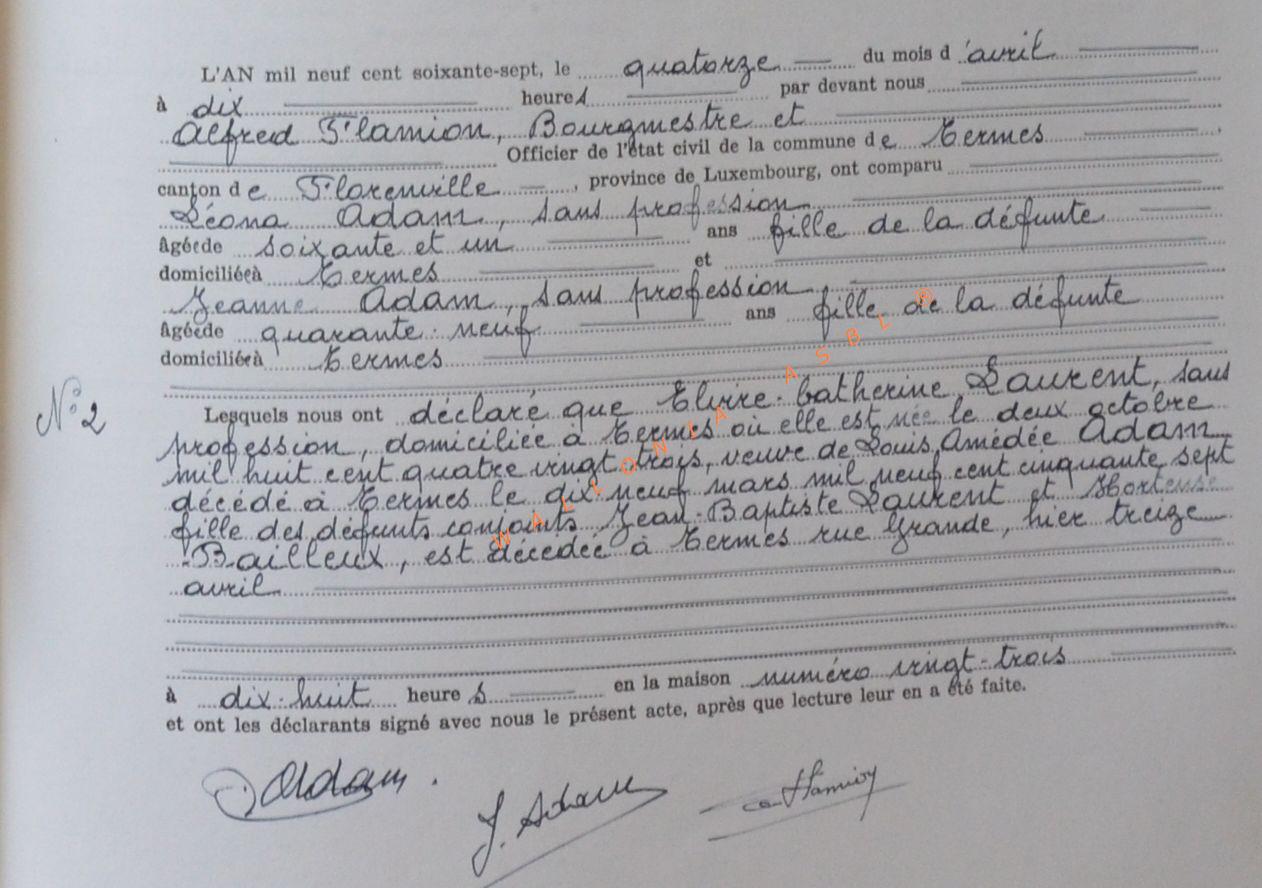 L'AN mil neuf cent soixante-sept, le quatorze du mois d'avril
à dix heures par devant nous
Alfred Flamion, Bourgmestre et
Officier de l'état civil de la commune de Termes,
canton de Florenville, province de Luxembourg, ont comparu
Léona Adam, sans profession
Âgée de soixante et un ans fille de la défunte
domiciliée à Termes et
Jeanne Adam, sans profession
Âgée de quarante-neuf ans fille de la défunte
domiciliée à Termes
N° 2
Lesquels nous ont déclaré que Elvire-Catherine Laurent, sans
profession, domiciliée à Termes où elle est née le deux octobre
mil huit cent quatre vingt-trois, veuve de Louis, Amédée Adam
décédé à Termes le dix neuf mars mil neuf cent cinquante sept
fille des défunts conjoints Jean-Baptiste Laurent et Hortense
Bailleux, est décédée à Termes rue Grande, hier treize
avril
à dix-huit heures en la maison numéro vingt-trois
et ont les déclarants signé avec nous le présent acte, après que lecture leur en a été faite.
L. Adam.
J. Adam
Flamion
WALLONIA ASBL ®